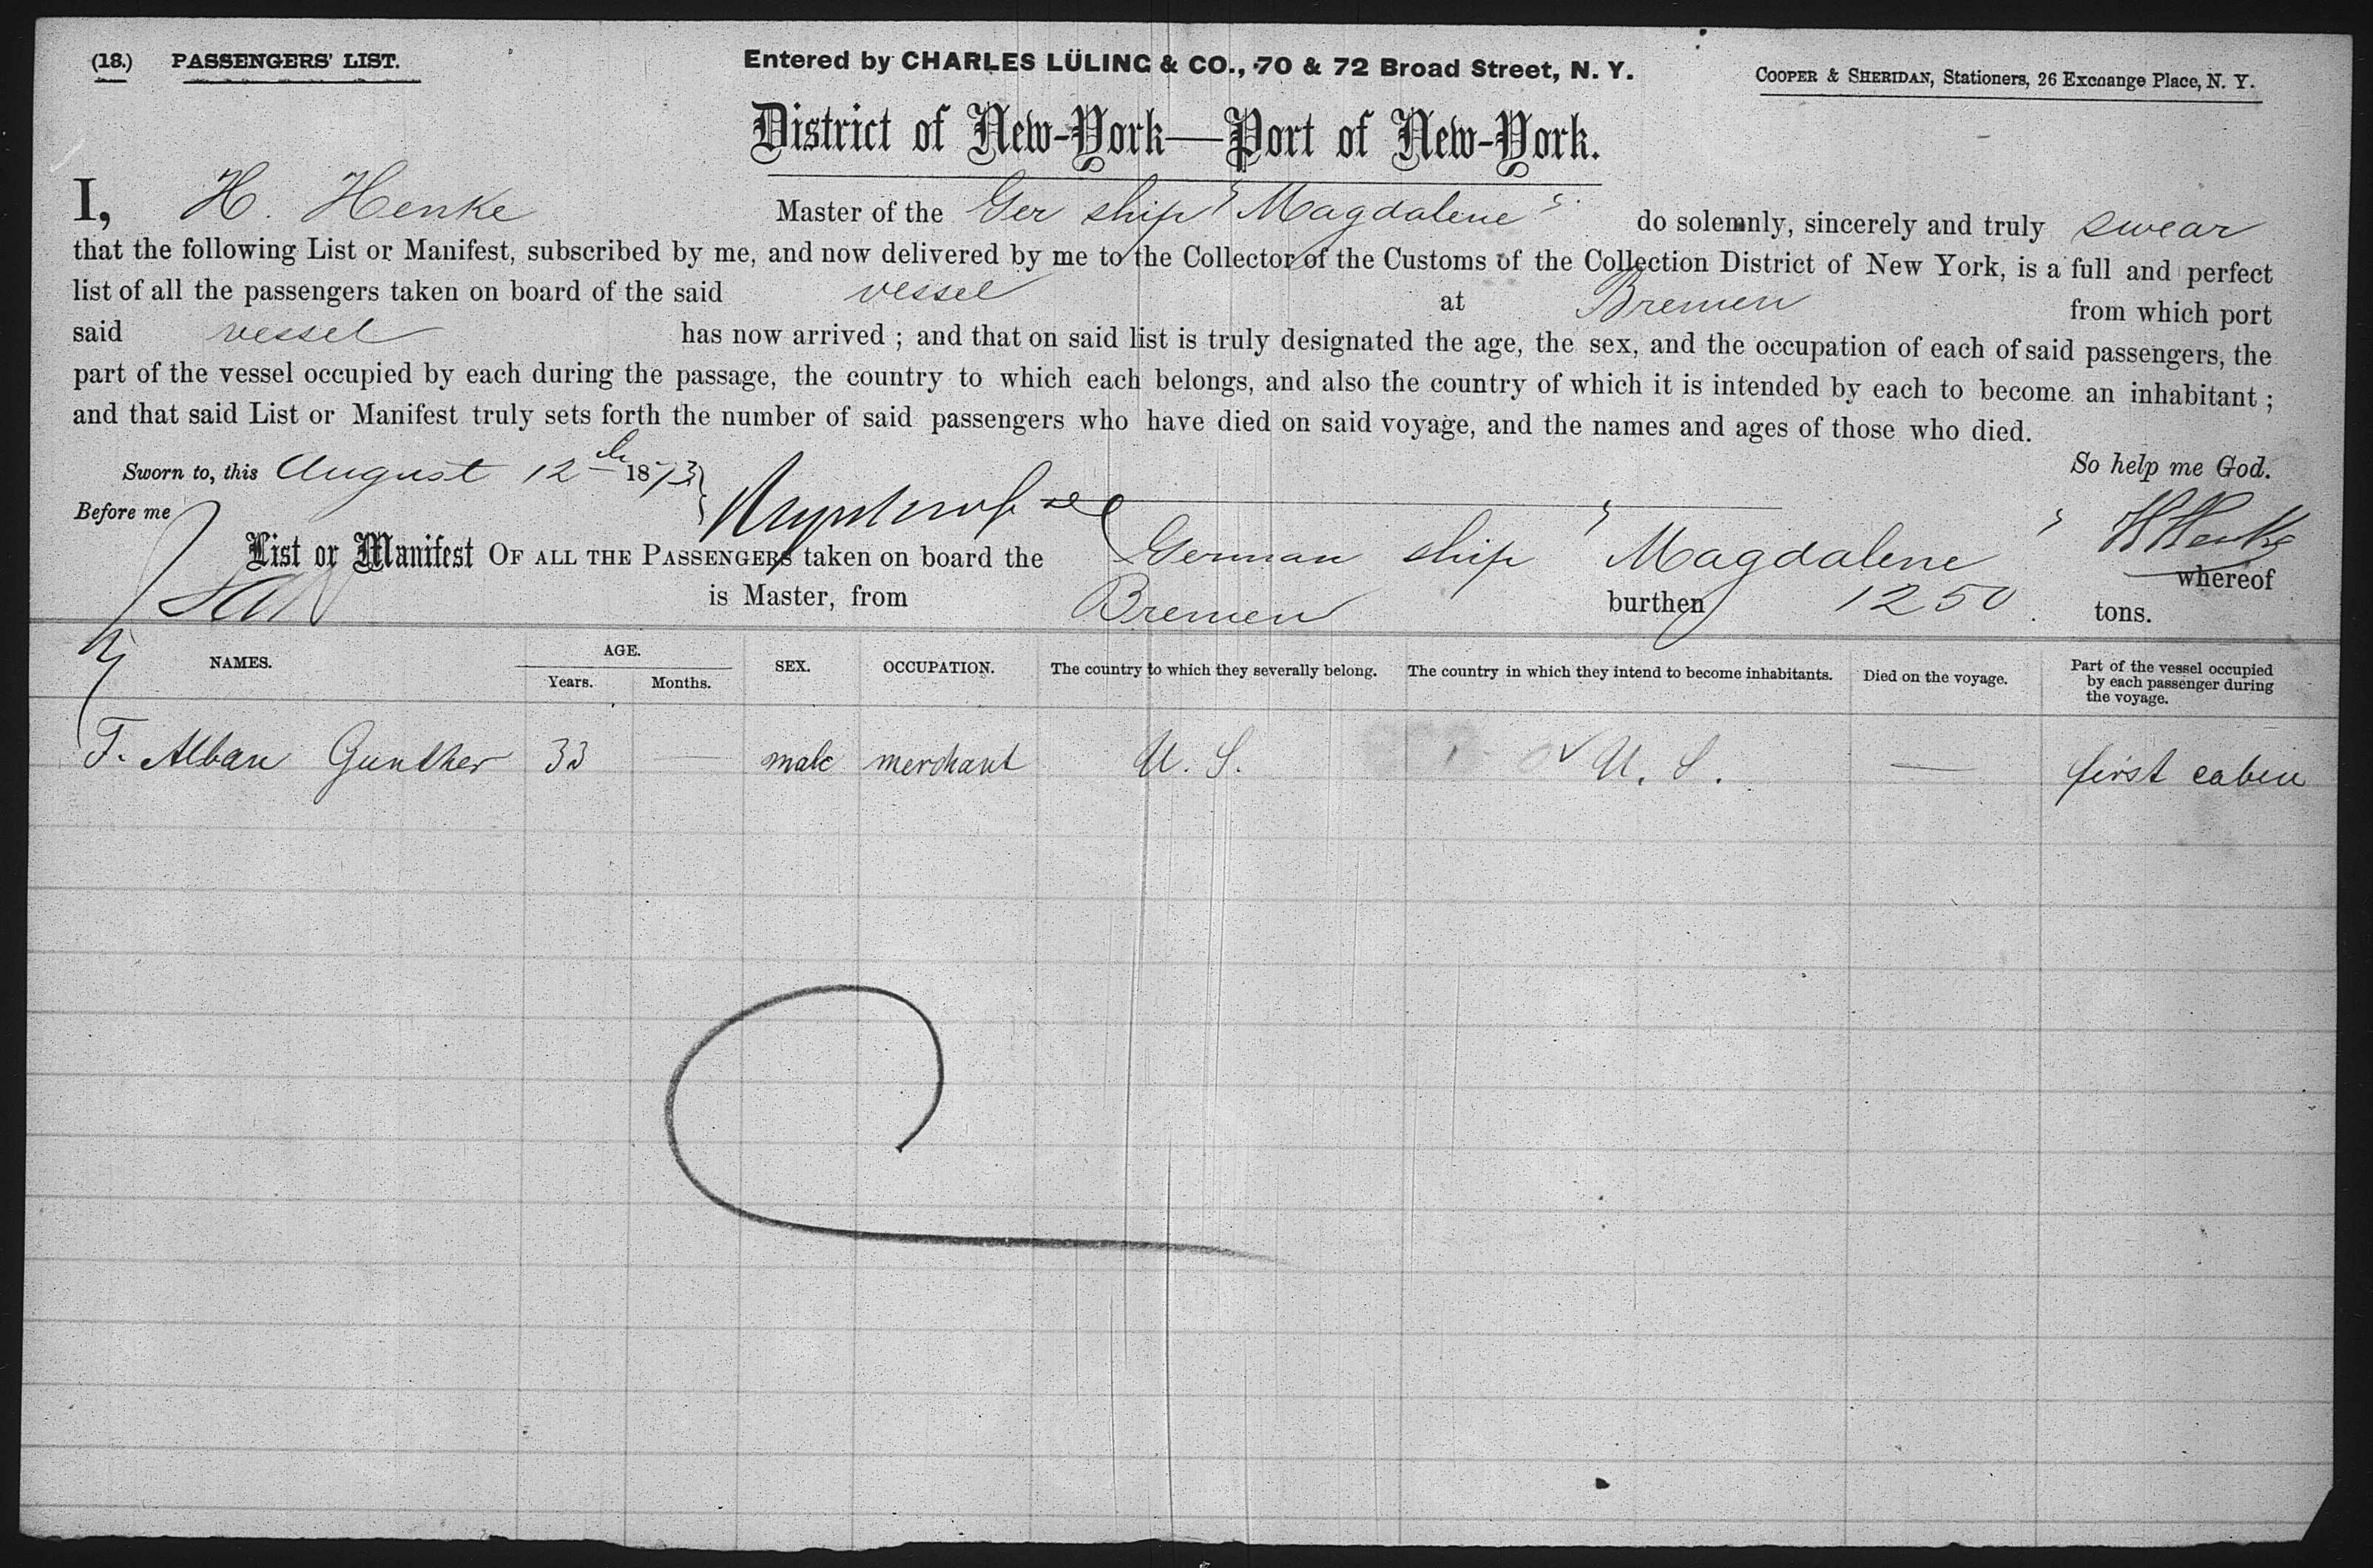 (18.) PASSENGERS' LIST.
Entered by CHARLES LÜLING & CO., 70 & 72 Broad Street, N. Y.
COOPER & SHERIDAN, Stationers, 26 Exchange Place, N. Y.
District of New-York—Port of New-York.
I, H. Henke Master of the Ger ship "Magdalene" do solemnly, sincerely and truly swear
that the following List or Manifest, subscribed by me, and now delivered by me to the Collector of the Customs of the Collection District of New York, is a full and perfect
list of all the passengers taken on board of the said vessel at Bremen from which port
said vessel has now arrived ; and that on said list is truly designated the age, the sex, and the occupation of each of said passengers, the
part of the vessel occupied by each during the passage, the country to which each belongs, and also the country of which it is intended by each to become an inhabitant ;
and that said List or Manifest truly sets forth the number of said passengers who have died on said voyage, and the names and ages of those who died.
Sworn to, this August 12th 1873 So help me God.
Before me H Henke
List or Manifest OF ALL THE PASSENGERS taken on board the German ship "Magdalene" whereof
is Master, from Bremen burthen 1250 tons.
NAMES. AGE. Years. Months. SEX. OCCUPATION. The country to which they severally belong. The country in which they intend to become inhabitants. Died on the voyage. Part of the vessel occupied by each passenger during the voyage.
F. Alban Gunther 33 — male merchant U. S. U. S. — first cabin